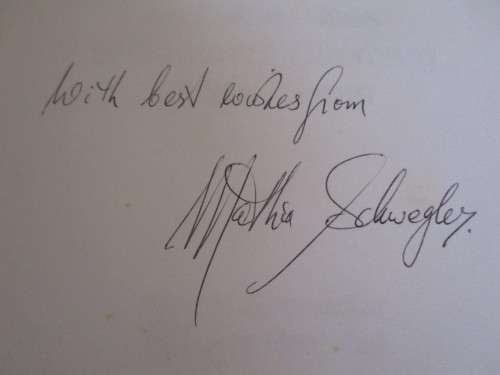 With best wishes from
Mathia Schwegler.